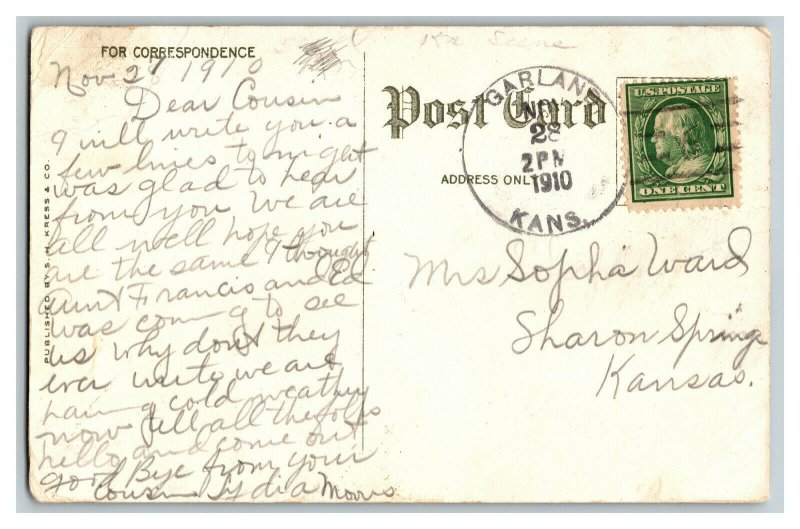 FOR CORRESPONDENCE
Nov 27 1910
Dear Cousin
I will write you a
few lines to night
was glad to hear
from you We are
all well hope you
are the same I thought
Aunt Francis and Ed
was coming to see
us why dont they
ever write we are
having cold weather
now tell all the folks
hello and come out
good Bye from your
Cousin Lydia Morris
PUBLISHED BY S. H. KRESS & CO.
Scene
Post Card
ADDRESS ONLY
GARLAND
NOV
28
2 PM
1910
KANS.
U.S. POSTAGE
ONE CENT
Mrs Sopha Ward
Sharon Springs
Kansas.